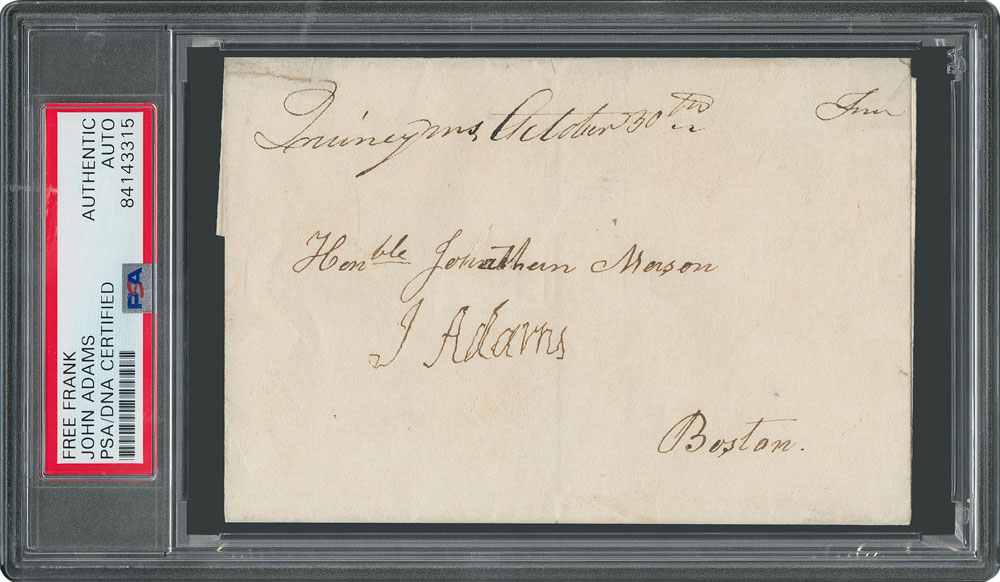 FREE FRANK AUTHENTIC
JOHN ADAMS AUTO
PSA/DNA CERTIFIED 84143315
PSA
Quincy ms, October 30th Free
Honble Jonathan Mason
J Adams
Boston.